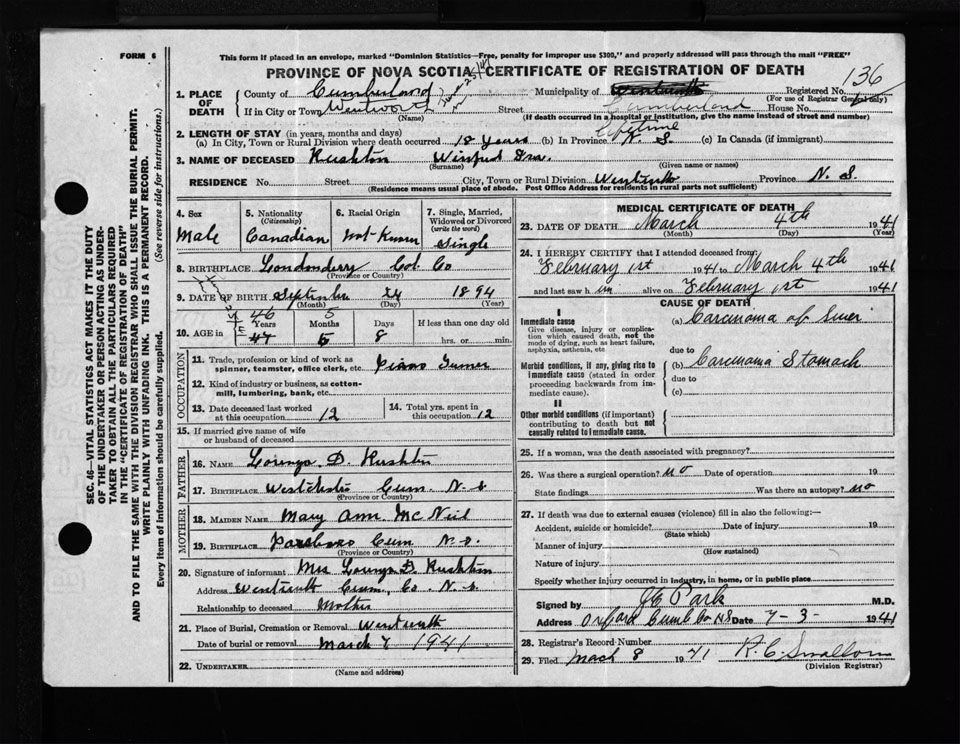 FORM 6
This form if placed in an envelope, marked "Dominion Statistics—Free, penalty for improper use $300," and properly addressed will pass through the mail "FREE"
PROVINCE OF NOVA SCOTIA—CERTIFICATE OF REGISTRATION OF DEATH
136
1. PLACE OF DEATH
County of Cumberland
Municipality of Cumberland
Registered No.
(For use of Registrar General only)
If in City or Town Wentworth Street House No.
(Name) (If death occurred in a hospital or institution, give the name instead of street and number)
2. LENGTH OF STAY (in years, months and days)
(a) In City, Town or Rural Division where death occurred 18 years (b) In Province Lifetime N. S. (c) In Canada (if immigrant)
3. NAME OF DECEASED Rushton Winfred
(Surname) (Given name or names)
RESIDENCE No. Street City, Town or Rural Division Wentworth Province N. S.
(Residence means usual place of abode. Post Office Address for residents in rural parts not sufficient)
4. Sex Male
5. Nationality (Citizenship) Canadian
6. Racial Origin Not Known
7. Single, Married, Widowed or Divorced (write the word) Single
8. BIRTHPLACE Londonderry Col. Co
(Province or Country)
9. DATE OF BIRTH September 24 1894
(Month) (Day) (Year)
10. AGE in 46 Years 5 Months 8 Days If less than one day old hrs. or min.
47 5
OCCUPATION
11. Trade, profession or kind of work as spinner, teamster, office clerk, etc. Piano Tunner
12. Kind of industry or business, as cotton-mill, lumbering, bank, etc.
13. Date deceased last worked at this occupation 12
14. Total yrs. spent in this occupation 12
15. If married give name of wife or husband of deceased
FATHER
16. NAME Lorenzo D. Rushton
17. BIRTHPLACE Westchester Cum. N. S
(Province or Country)
MOTHER
18. MAIDEN NAME Mary Ann Mc Neil
19. BIRTHPLACE Parsboro Cum N. S.
(Province or Country)
20. Signature of informant Mrs Lorenzo D. Rushton
Address Wentworth Cum. Co. N. S
Relationship to deceased Mother
21. Place of Burial, Cremation or Removal Wentworth
Date of burial or removal March 7 1941
22. UNDERTAKER
(Name and address)
MEDICAL CERTIFICATE OF DEATH
23. DATE OF DEATH March 4th 1941
(Month) (Day) (Year)
24. I HEREBY CERTIFY that I attended deceased from
February 1st 1941 to March 4th 1941
and last saw h im alive on February 1st 1941
CAUSE OF DEATH
I
Immediate cause
Give disease, injury or complication which caused death, not the mode of dying, such as heart failure, asphyxia, asthenia, etc
(a) Carcinoma of Liver
due to
Morbid conditions, if any, giving rise to immediate cause (stated in order proceeding backwards from immediate cause).
(b) Carcinoma Stomach
due to
(c)
II
Other morbid conditions (if important) contributing to death but not causally related to immediate cause.
25. If a woman, was the death associated with pregnancy?
26. Was there a surgical operation? no Date of operation 19
State findings Was there an autopsy? no
27. If death was due to external causes (violence) fill in also the following:—
Accident, suicide or homicide? Date of injury 19
(State which)
Manner of injury
(How sustained)
Nature of injury
Specify whether injury occurred in industry, in home, or in public place
Signed by Park M.D.
Address Oxford Cumb Co NS Date 7 - 3 - 1941
28. Registrar's Record Number
29. Filed March 8 1941 R. C. Smallom
(Division Registrar)
SEC. 46—VITAL STATISTICS ACT MAKES IT THE DUTY
OF THE UNDERTAKER OR PERSON ACTING AS UNDER-
TAKER TO OBTAIN ALL THE PARTICULARS REQUIRED
IN THE "CERTIFICATE OF REGISTRATION OF DEATH"
AND TO FILE THE SAME WITH THE DIVISION REGISTRAR WHO SHALL ISSUE THE BURIAL PERMIT.
WRITE PLAINLY WITH UNFADING INK. THIS IS A PERMANENT RECORD.
Every item of information should be carefully supplied. (See reverse side for instructions.)